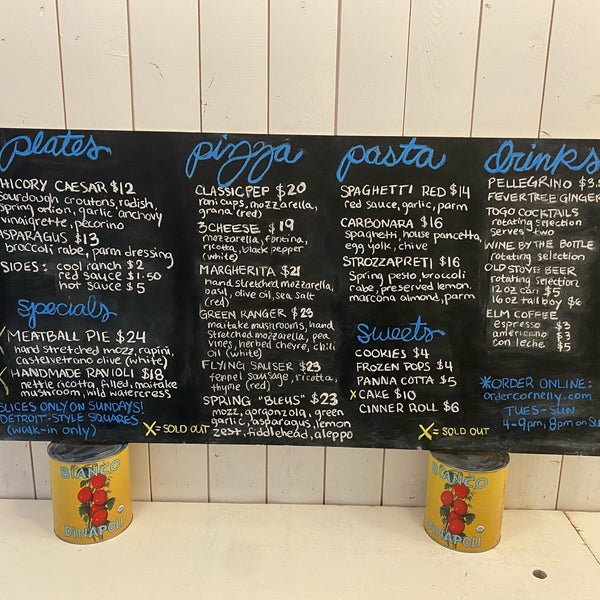 plates
HICORY CAESAR $12
sourdough croutons, radish,
spring onion, garlic anchovy
vinaigrette, pecorino
ASPARAGUS $13
broccoli rabe, parm dressing
SIDES: cool ranch $2
red sauce $1.50
hot sauce $5
Specials
X MEATBALL PIE $24
hand stretched mozz, rapini,
castelvetrano olive (white)
X HANDMADE RAVIOLI $18
nettle ricotta filled, maitake
mushroom, wild watercress
SLICES ONLY ON SUNDAYS!
DETROIT-STYLE SQUARES
(walk-in only)
X = SOLD OUT
pizza
CLASSIC PEP $20
roni cups, mozzarella,
grana (red)
3CHEESE $19
mozzarella, fontina,
ricotta, black pepper
(white)
MARGHERITA $21
hand stretched mozzarella,
basil, olive oil, sea salt
(red)
GREEN RANGER $23
maitake mushrooms, hand
stretched mozzarella, pea
vines, herbed chevre, chili
oil (white)
FLYING SAUSER $23
fennel sausage, ricotta,
thyme (red)
SPRING "BLEUS" $23
mozz, gorgonzola, green
garlic, asparagus, lemon
zest, fiddlehead, aleppo
pasta
SPAGHETTI RED $14
red sauce, garlic, parm
CARBONARA $16
spaghetti, house pancetta,
egg yolk, chive
STROZZAPRETI $16
Spring pesto, broccoli
rabe, preserved lemon,
marcona almond, parm
Sweets
COOKIES $4
FROZEN POPS $4
PANNA COTTA $5
X CAKE $10
CINNER ROLL $6
X = SOLD OUT
Drinks
PELLEGRINO $3.
FEVER TREE GINGER
TOGO COCKTAILS
rotating selection
serves two
WINE BY THE BOTTLE
rotating selection
OLD STOVE BEER
rotating selection
12 oz can $5
16 oz tall boy $6
ELM COFFEE
espresso $3
americano $3
con leche $5
*ORDER ONLINE:
ordercornelly.com
TUES-SUN
4-9pm, 8pm on
BIANCO
DINAPOLI
BIANCO
DINAPOLI